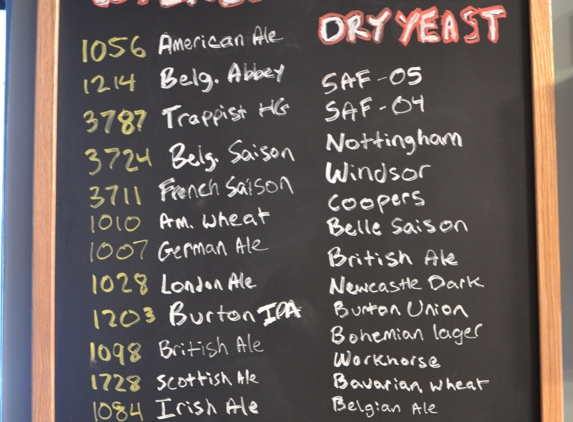 1056 American Ale
1214 Belg. Abbey
3787 Trappist HG
3724 Belg. Saison
3711 French Saison
1010 Am. Wheat
1007 German Ale
1028 London Ale
1203 Burton IPA
1098 British Ale
1728 Scottish Ale
1084 Irish Ale
DRY YEAST
SAF-05
SAF-04
Nottingham
Windsor
Coopers
Belle Saison
British Ale
Newcastle Dark
Burton Union
Bohemian lager
Workhorse
Bavarian Wheat
Belgian Ale